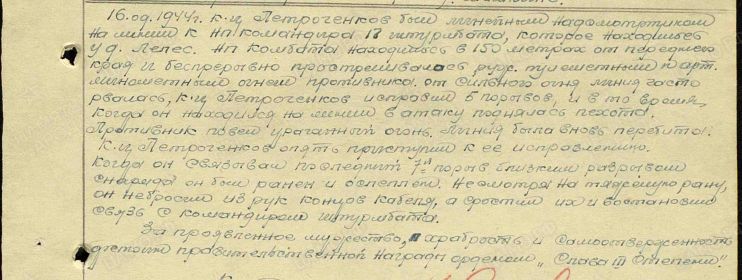 16.09.1944г. К-ц Петроченков был линейным надсмотрщиком
на линии к НП командира 17 штурмбата, которое находилось
у д. Лелес. НП комбата находилось в 150 метрах от переднего
края и беспрерывно простреливалась руж. пулеметным и арт.
минометным огнем противника. от сильного огня линия часто
рвалась, К-ц Петроченков исправил 5 порывов, и в то время,
когда он находился на линии в атаку поднялась пехота.
Противник повел ураганный огонь. Линия была вновь перебита.
К-ц Петроченков опять приступил к ее исправлению.
Когда он связывал последний 7й порыв близким разрывом
снаряда он был ранен и ослеплен. Несмотря на тяжелую рану,
он небросил из рук концов кабеля, а сростил их и востановил
связь с командиром штурмбата.
За проявленное мужество, храбрость и самоотверженность
достоин правительственной награды орденом "Слава III степени"